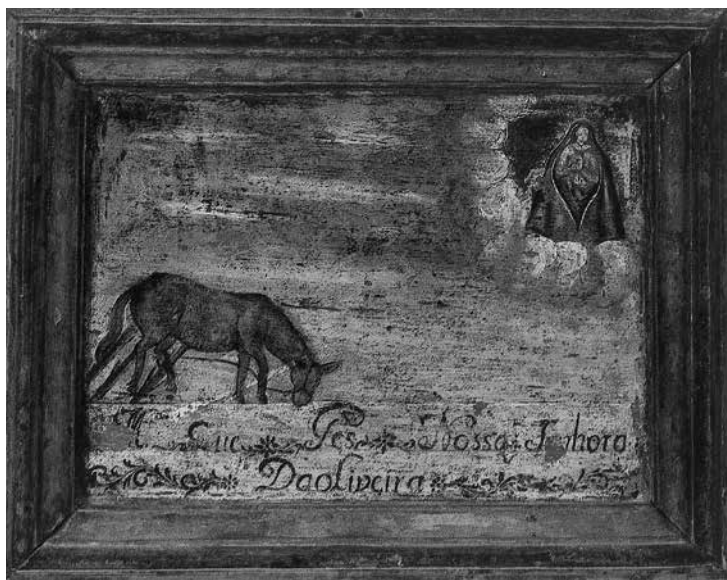 M. Que Fes Nossa Senhora
Daoliveira